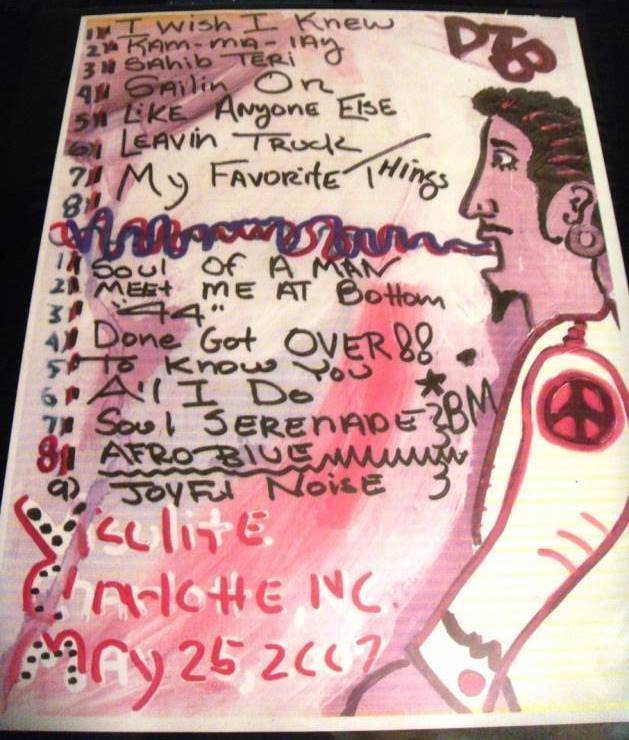 1 I Wish I Knew
DTB
2 KAM-MA-LAY
3 SAHIB TERI
4 Sailin On
5 LIKE Anyone ElSE
6 LEAVin TRUCK
7 My FAVORiTE THings
8
1 Soul OF A MAN
2 MEET ME AT BoTTom
3 "44"
4 Done Got OVER!!
5 To Know You
6 All I Do *
7 Soul SERENADE } BM
8 AFRO BlUE
9) JOYFUl NoiSE
ViSuliTE
ChArlOTTE NC.
MAy 25, 2007